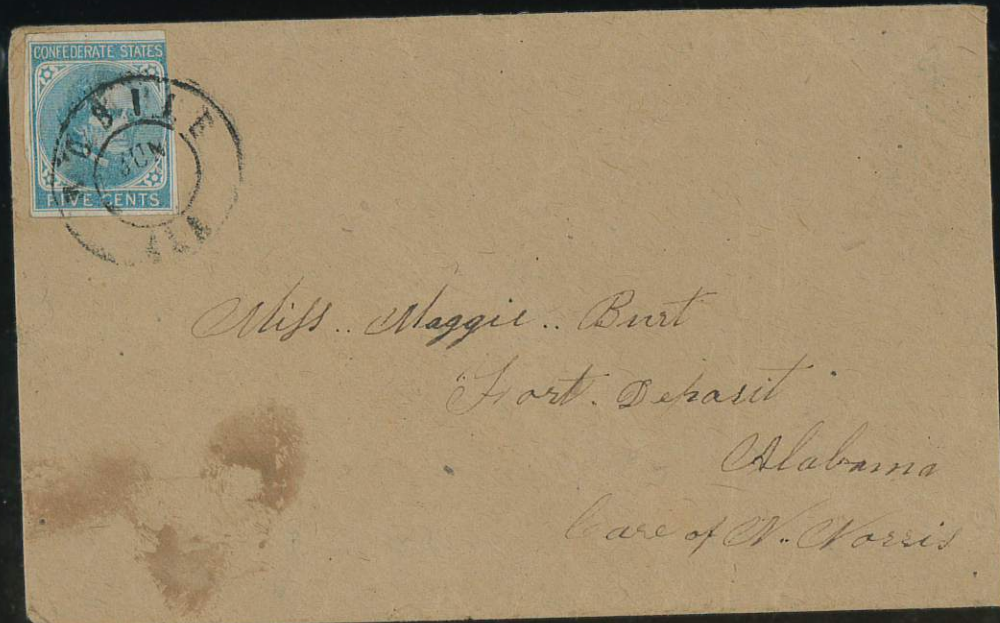 CONFEDERATE STATES
FIVE CENTS
MOBILE
JUN
ALA
Miss.. Maggie.. Burt
Fort. Deposit
Alabama
Care of N.. Norris